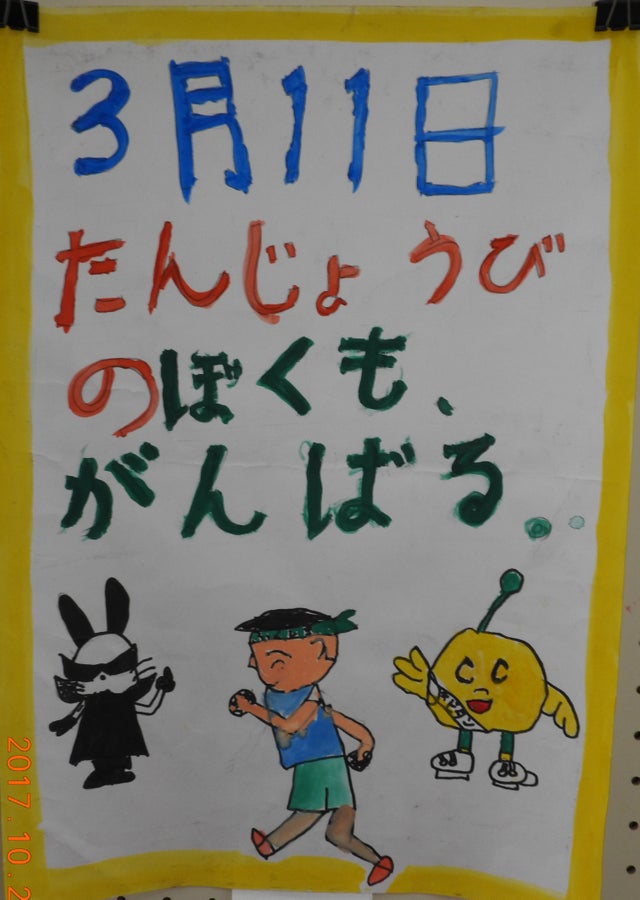 3月11日
たんじょうび
のぼくも、
がんばる。
2017.10.2